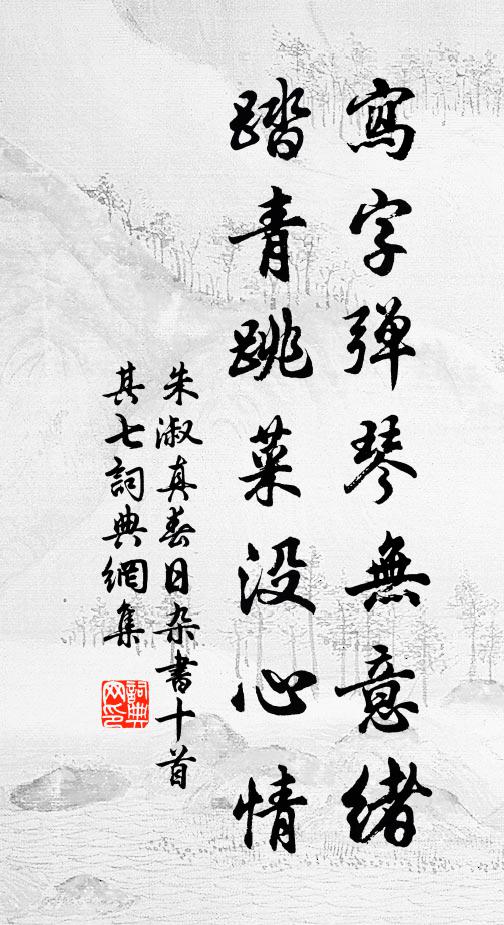 寫字弹琴無意緒
踏青跳菜没心情
朱淑真春日杂書十首
其七詞典網集
詞典
网印